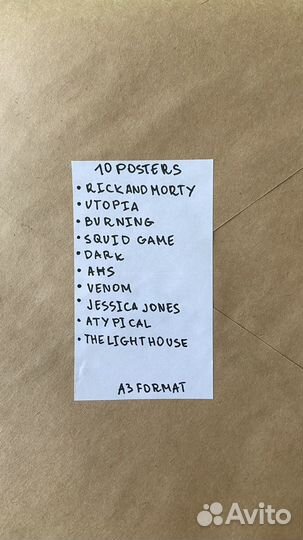 10 POSTERS
• RICK AND MORTY
• UTOPIA
• BURNING
• SQUID GAME
• DARK
• AHS
• VENOM
• JESSICA JONES
• ATYPICAL
• THE LIGHTHOUSE
A3 FORMAT
Avito